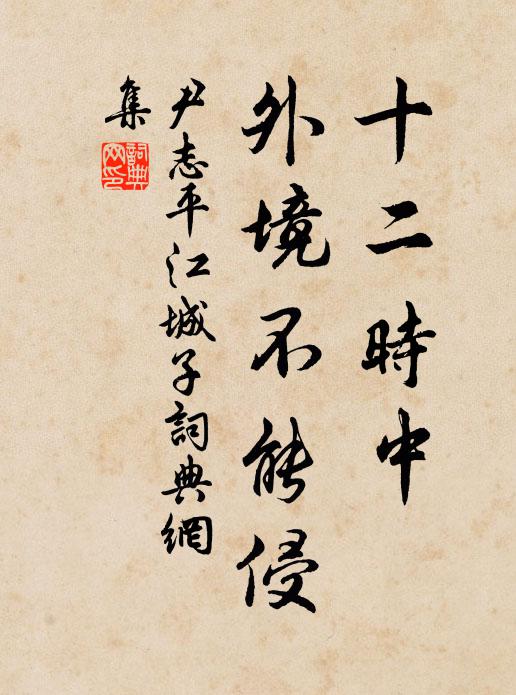 十二時中
外境不能侵
尹志平江城子詞典網
集
詞典網印